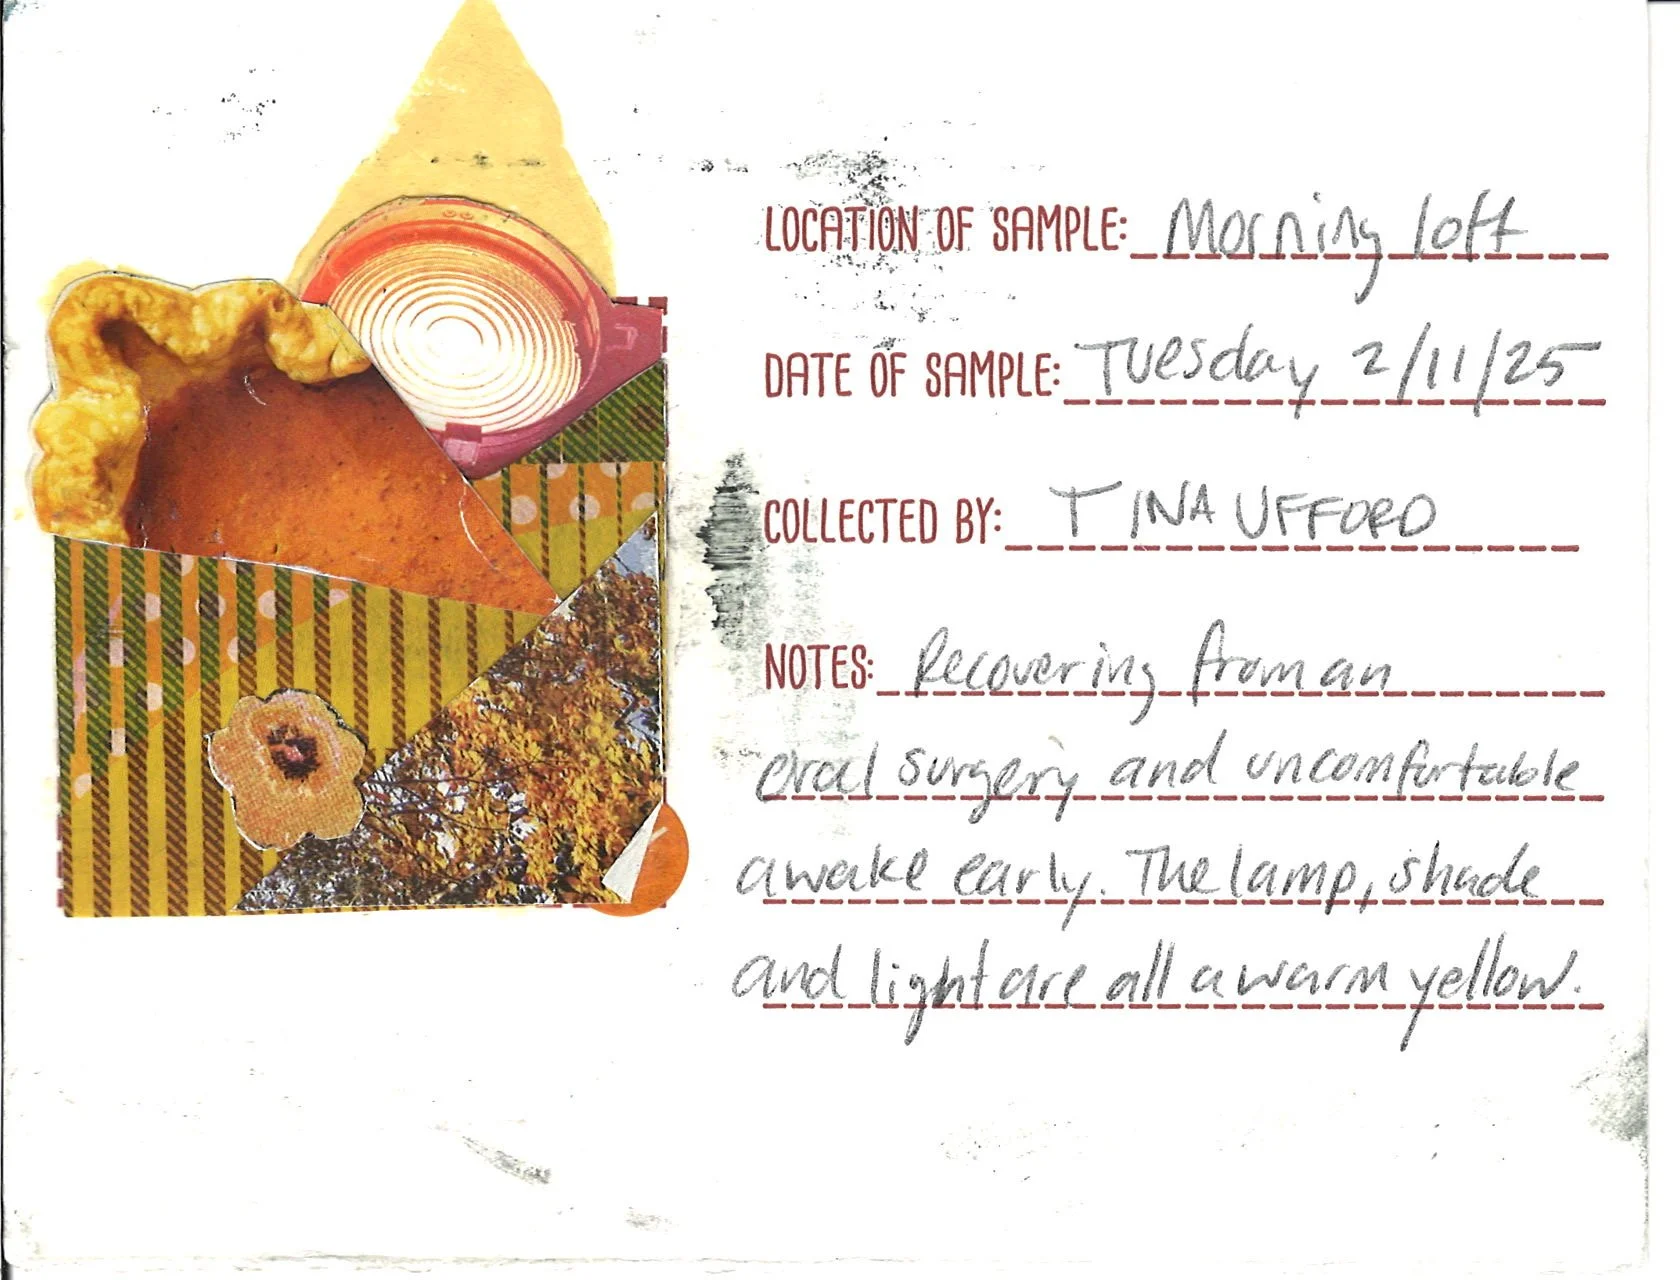 LOCATION OF SAMPLE: Morning loft
DATE OF SAMPLE: Tuesday 2/11/25
COLLECTED BY: TINA UFFORD
NOTES: Recovering from an
oral surgery and uncomfortable
awake early. The lamp, shade
and light are all a warm yellow.